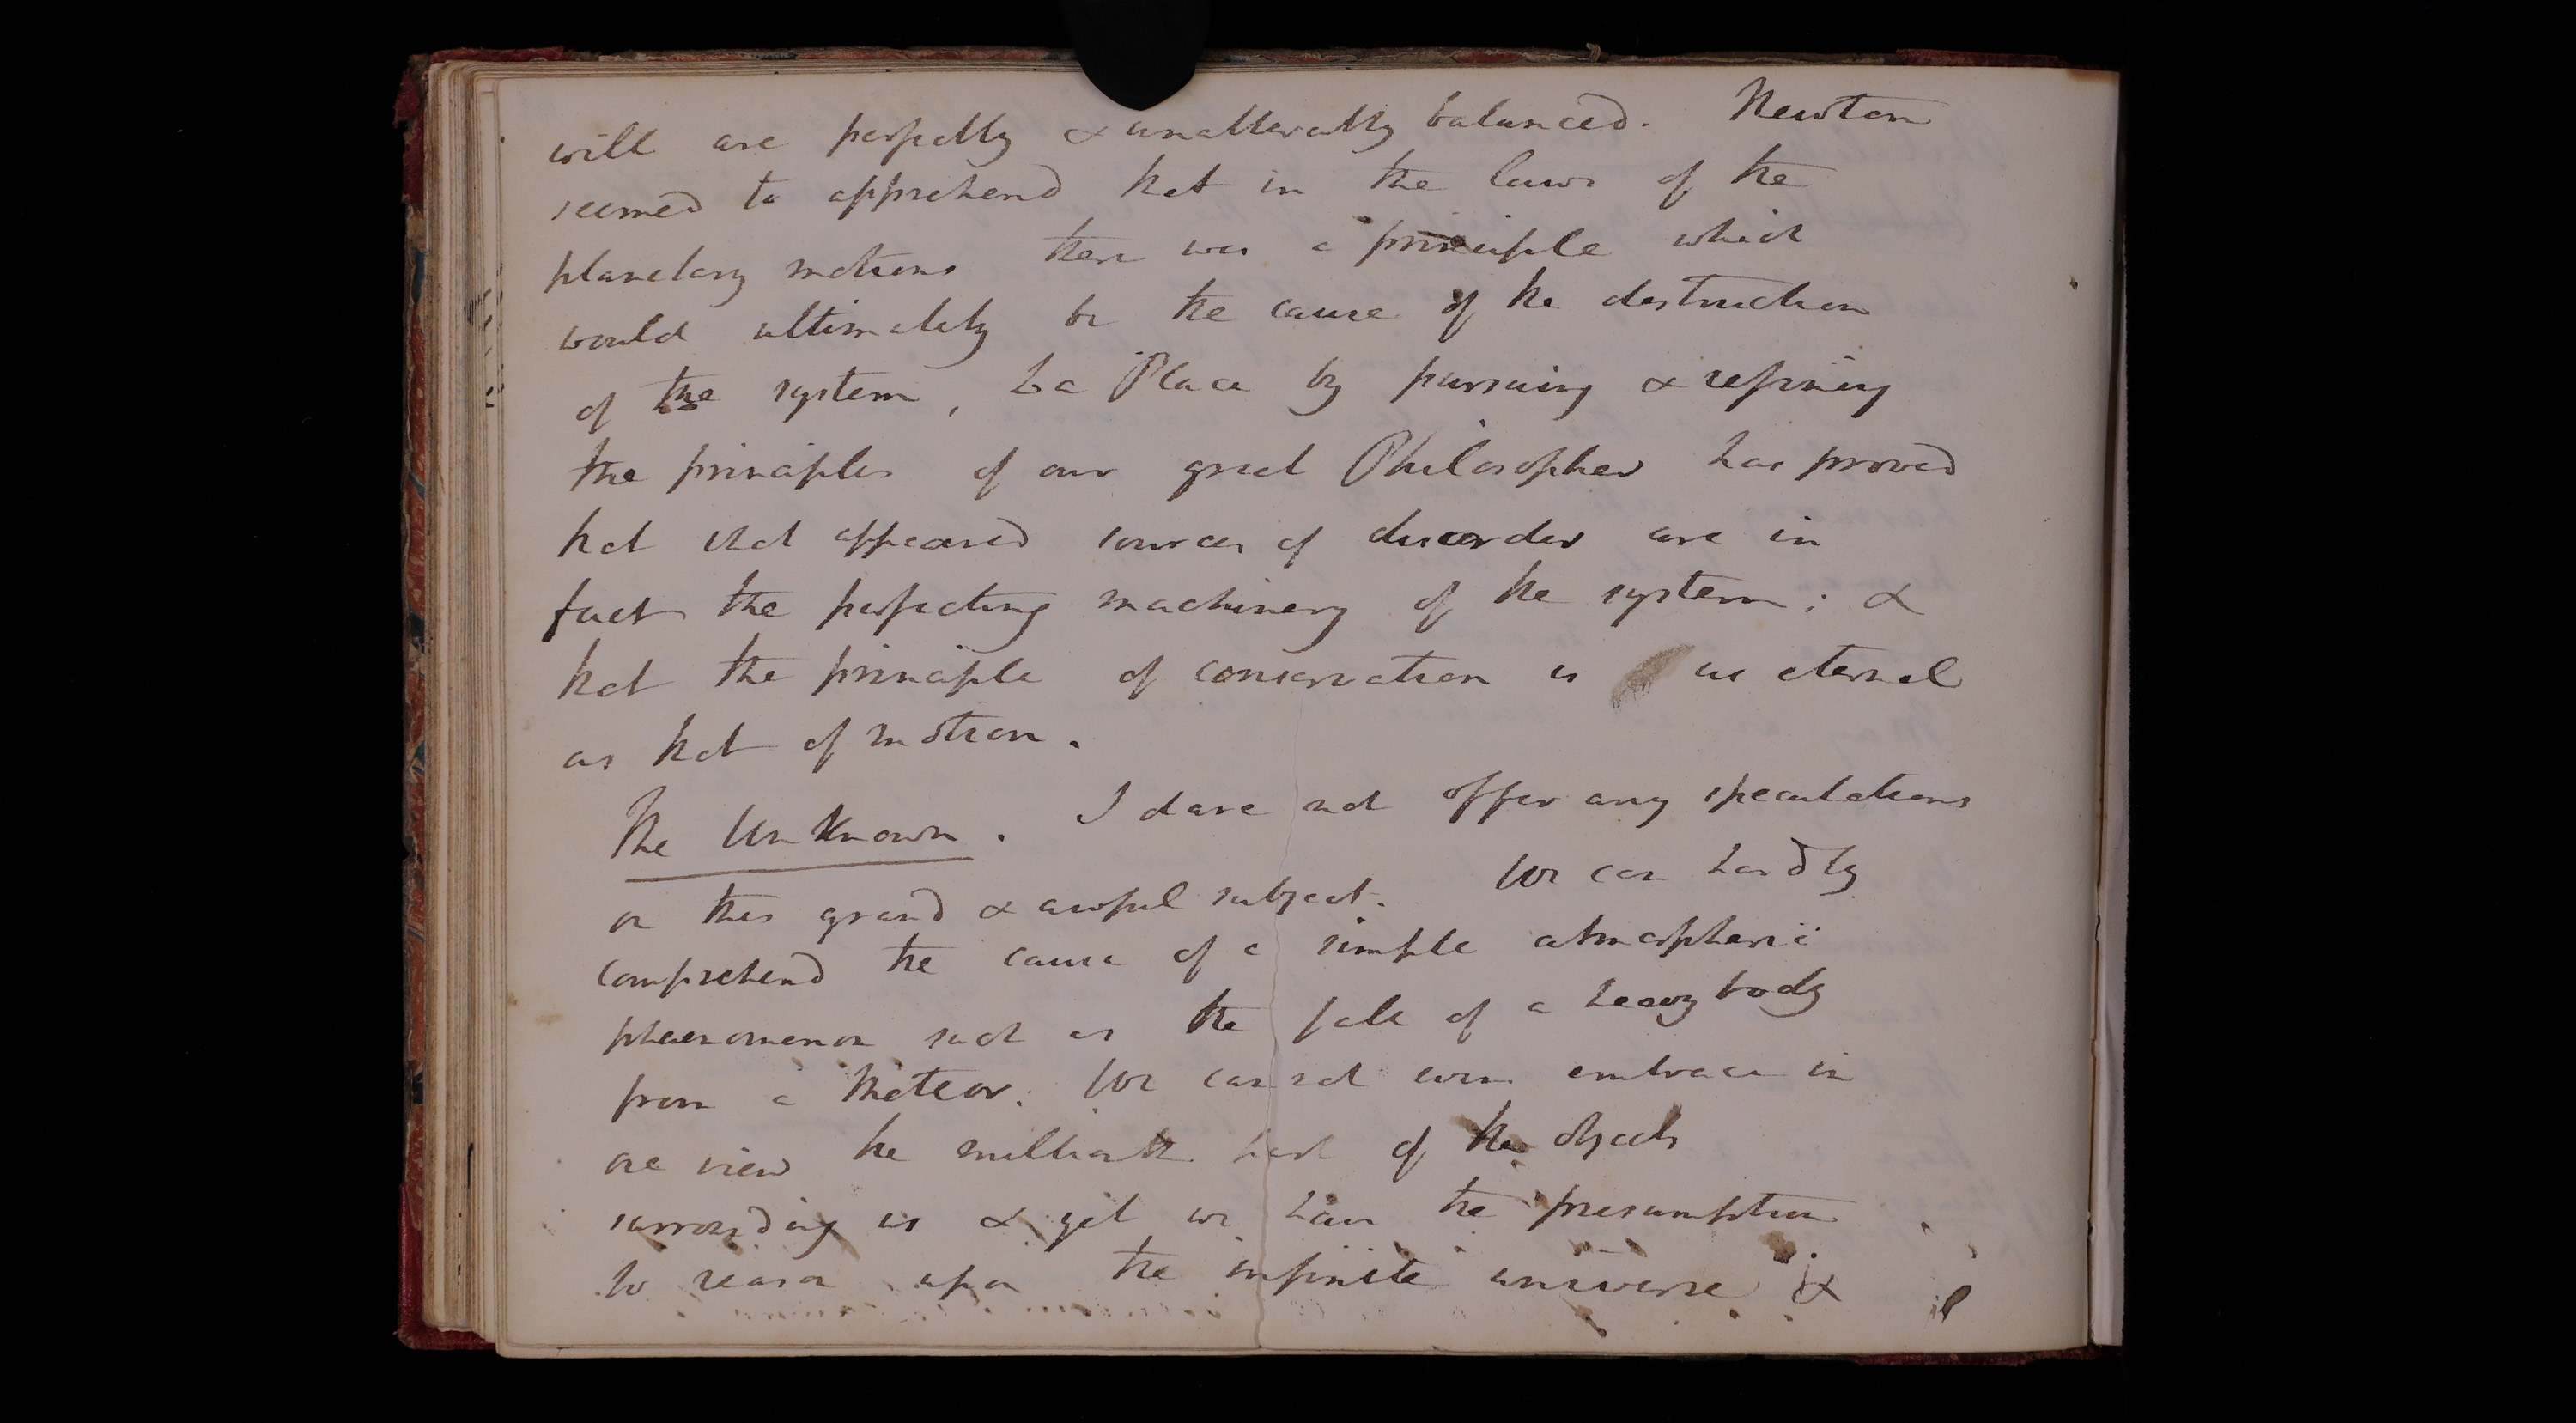 will are perfectly & unalterably balanced. Newton
seemed to apprehend that in the laws of the
planetary motions there was a principle which
would ultimately be the cause of the destruction
of the system, La Place by pursuing & refining
the principles of our great Philosopher has proved
that what appeared sources of disorder are in
fact the perfecting machinery of the system; &
that the principle of conservation is as eternal
as that of motion.
The Unknown. I dare not offer any speculations
on this grand & awful subject. We can hardly
comprehend the cause of a simple atmospheric
phaenomenon such as the fall of a heavy body
from a Meteor. We cannot even embrace in
one view the millionth part of the objects
surrounding us & yet we have the presumption
to reason upon the infinite universe &